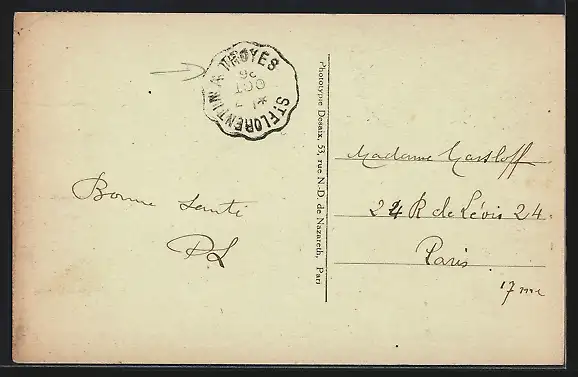 ST FLORENTIN A TROYES
OCT
26
Bonne Santé
PL
Phototypie Desaix, 53, rue N.-D. de Nazareth, Pari
Madame
24 R de Lévis 24.
Paris
17me